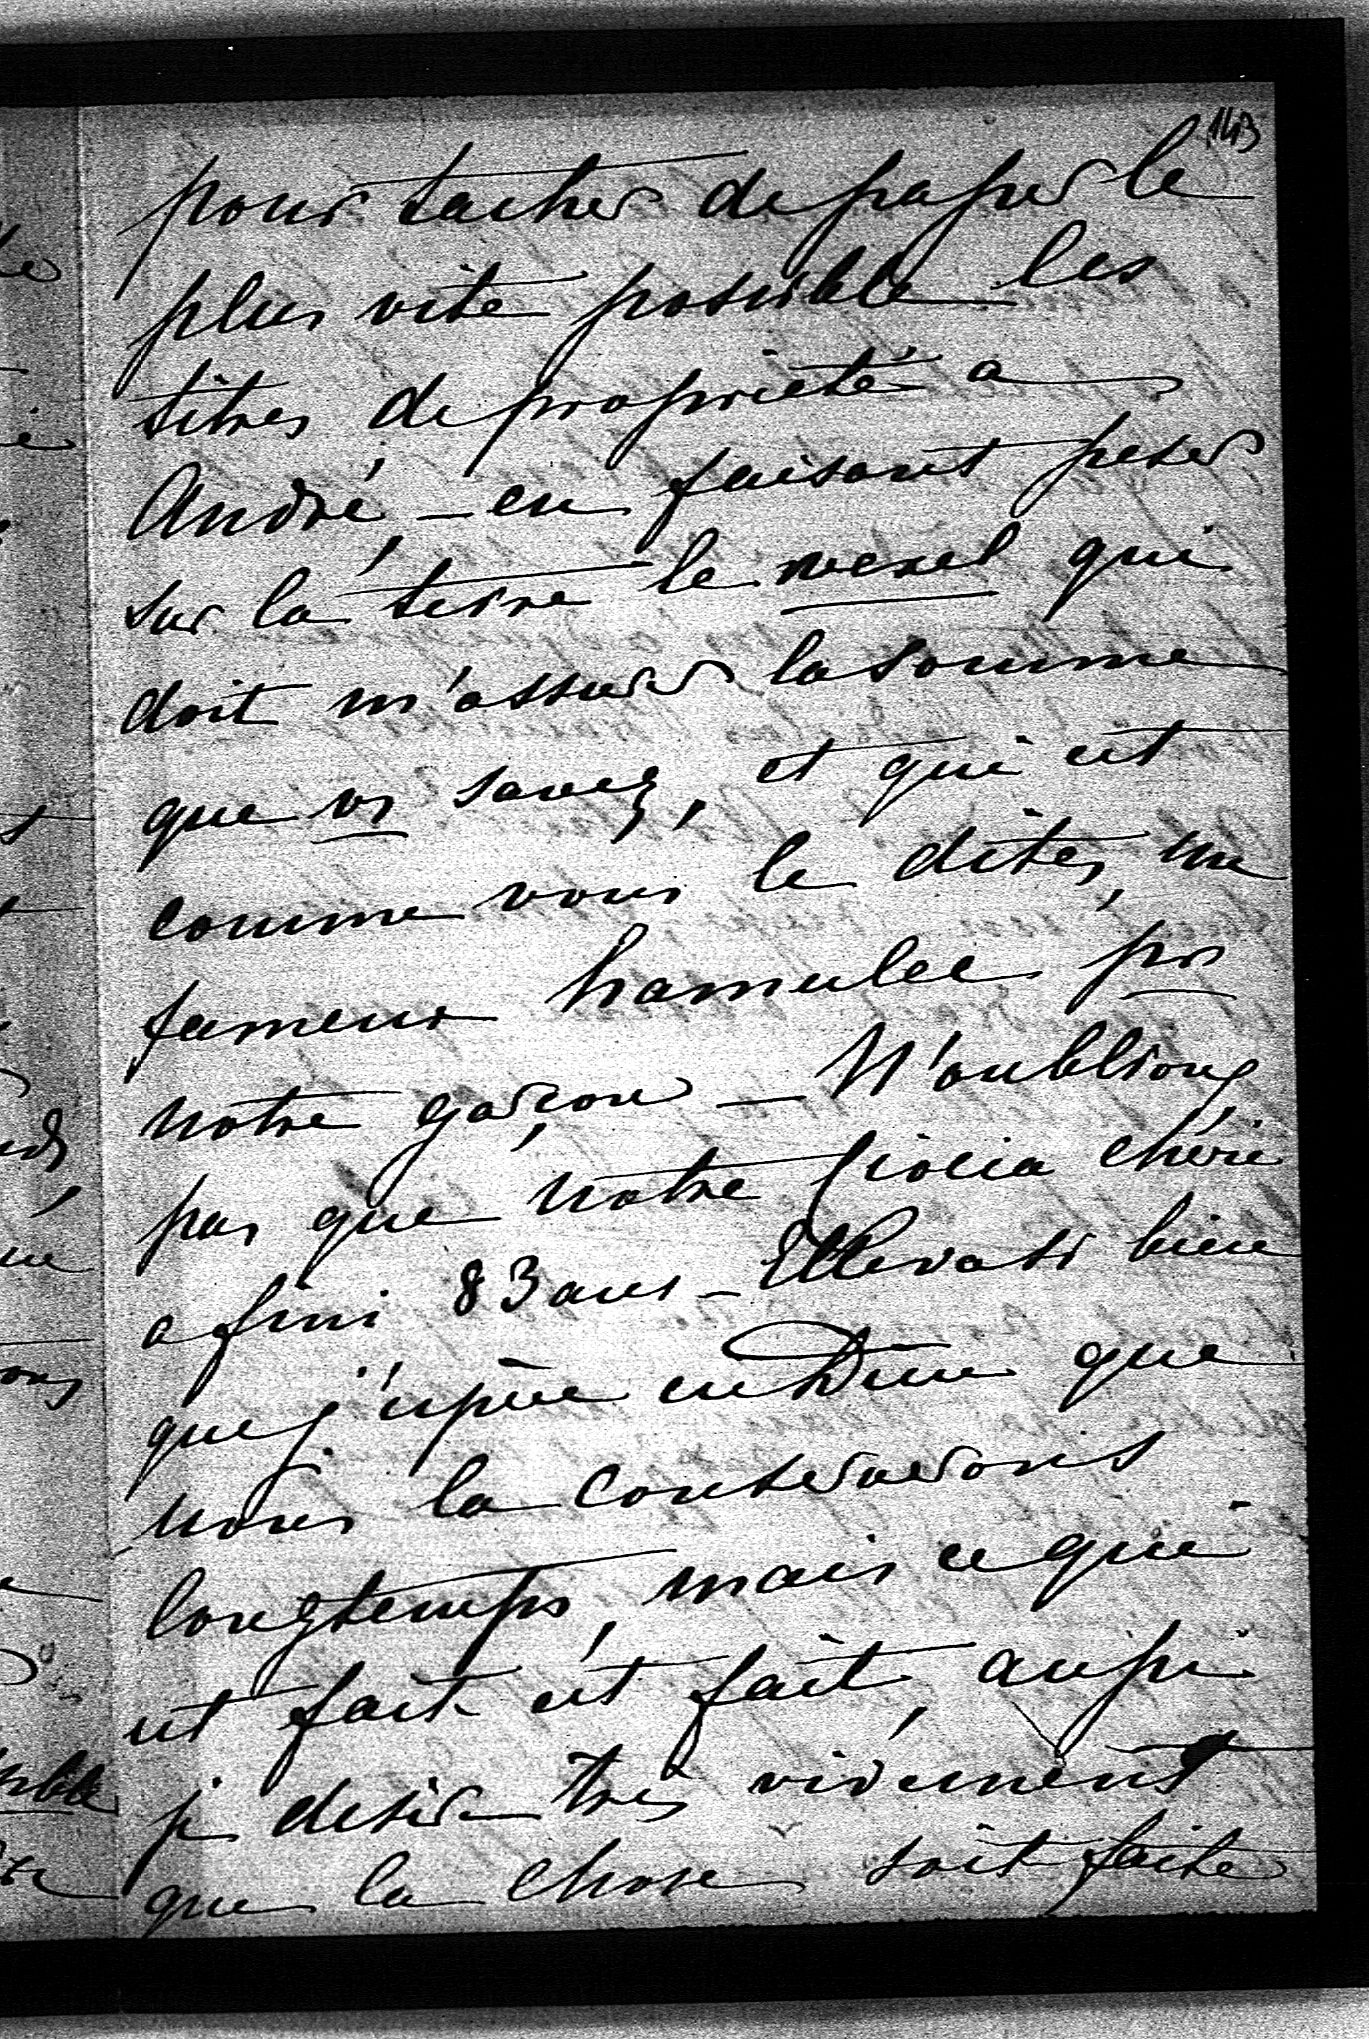 143
pour tacher de passer le
plus vite possible les
titres de proprieté a
André – en faisant peser
sur la terre le wexel qui
doit m'assurer la somme
que vs savez, et qui est
comme vous le dites, un
fameux hamulec pr
notre garçon – N'oublions
pas que notre Ciocia chérie
a fini 83 ans – Elle va si bien
que j'espère en Dieu que
nous la conserverons
longtemps, mais ce qui
est fait est fait, aussi
je desire très vivement
que la chose soit faite